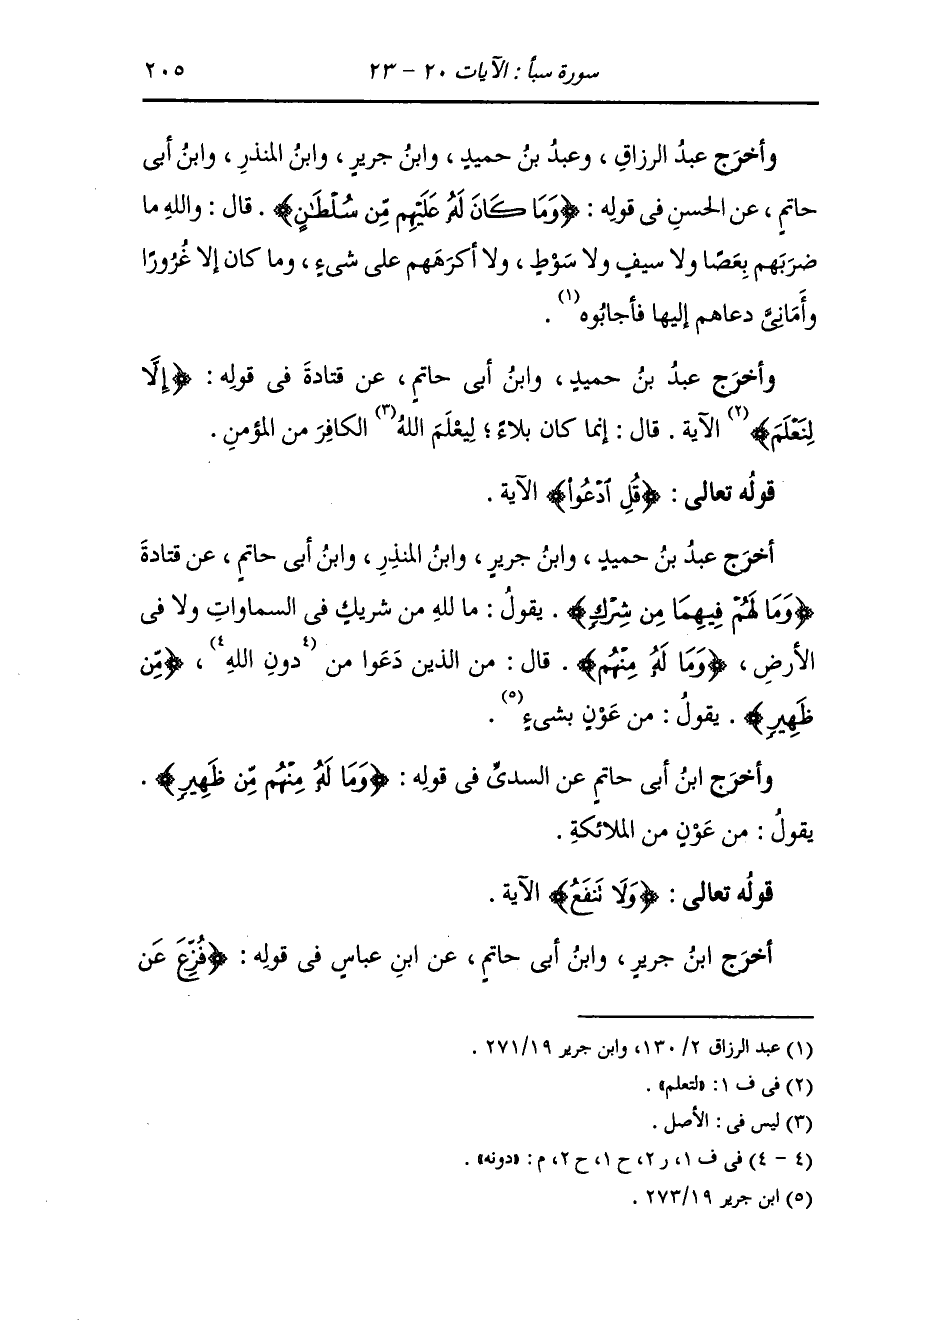 سورة سبأ : الآيات ٢٠ - ٢٣ ٢٠٥
وأخرَج عبدُ الرزاقِ ، وعبدُ بنُ حميدٍ ، وابنُ جريرٍ ، وابنُ المنذرِ ، وابنُ أبى
حاتمٍ ، عن الحسنِ فى قولِه : ﴿وَمَا كَانَ لَهُۥ عَلَيْهِم مِّن سُلْطَٰنٍ﴾ . قال : واللهِ ما
ضرَبَهم بِعَصًا ولا سيفٍ ولا سَوْطٍ ، ولا أكرَهَهم على شىءٍ ، وما كان إلا غُرُورًا
وأَمَانِىَّ دعاهم إليها فأجابُوه(١) .
وأخرَج عبدُ بنُ حميدٍ ، وابنُ أبى حاتمٍ ، عن قتادةَ فى قولِه : ﴿إِلَّا
لِنَعْلَمَ﴾(٢) الآية . قال : إنما كان بلاءً ؛ لِيعْلَمَ اللهُ(٣) الكافِرَ من المؤمنِ .
قولُه تعالى : ﴿قُلِ ٱدْعُوا۟﴾ الآية .
أخرَج عبدُ بنُ حميدٍ ، وابنُ جريرٍ ، وابنُ المنذِرِ ، وابنُ أبى حاتمٍ ، عن قتادةَ
﴿وَمَا لَهُمْ فِيهِمَا مِن شِرْكٍ﴾ . يقولُ : ما للهِ من شريكٍ فى السماواتِ ولا فى
الأرضِ ، ﴿وَمَا لَهُۥ مِنْهُم﴾ . قال : من الذين دَعَوا من (٤دونِ اللهِ٤) ، ﴿مِّن
ظَهِيرٍ﴾ . يقولُ : من عَوْنٍ بشىءٍ(٥) .
وأخرَج ابنُ أبى حاتمٍ عن السدىِّ فى قولِه : ﴿وَمَا لَهُۥ مِنْهُم مِّن ظَهِيرٍ﴾ .
يقولُ : من عَوْنٍ من الملائكةِ .
قولُه تعالى : ﴿وَلَا تَنفَعُ﴾ الآية .
أخرَج ابنُ جريرٍ ، وابنُ أبى حاتمٍ ، عن ابنِ عباسٍ فى قولِه : ﴿فُزِّعَ عَن
(١) عبد الرزاق ٢/ ١٣٠، وابن جرير ٢٧١/١٩ .
(٢) فى ف ١: «لتعلم» .
(٣) ليس فى : الأصل .
(٤ - ٤) فى ف ١، ر ٢، ح ١، ح ٢، م : «دونه» .
(٥) ابن جرير ٢٧٣/١٩ .